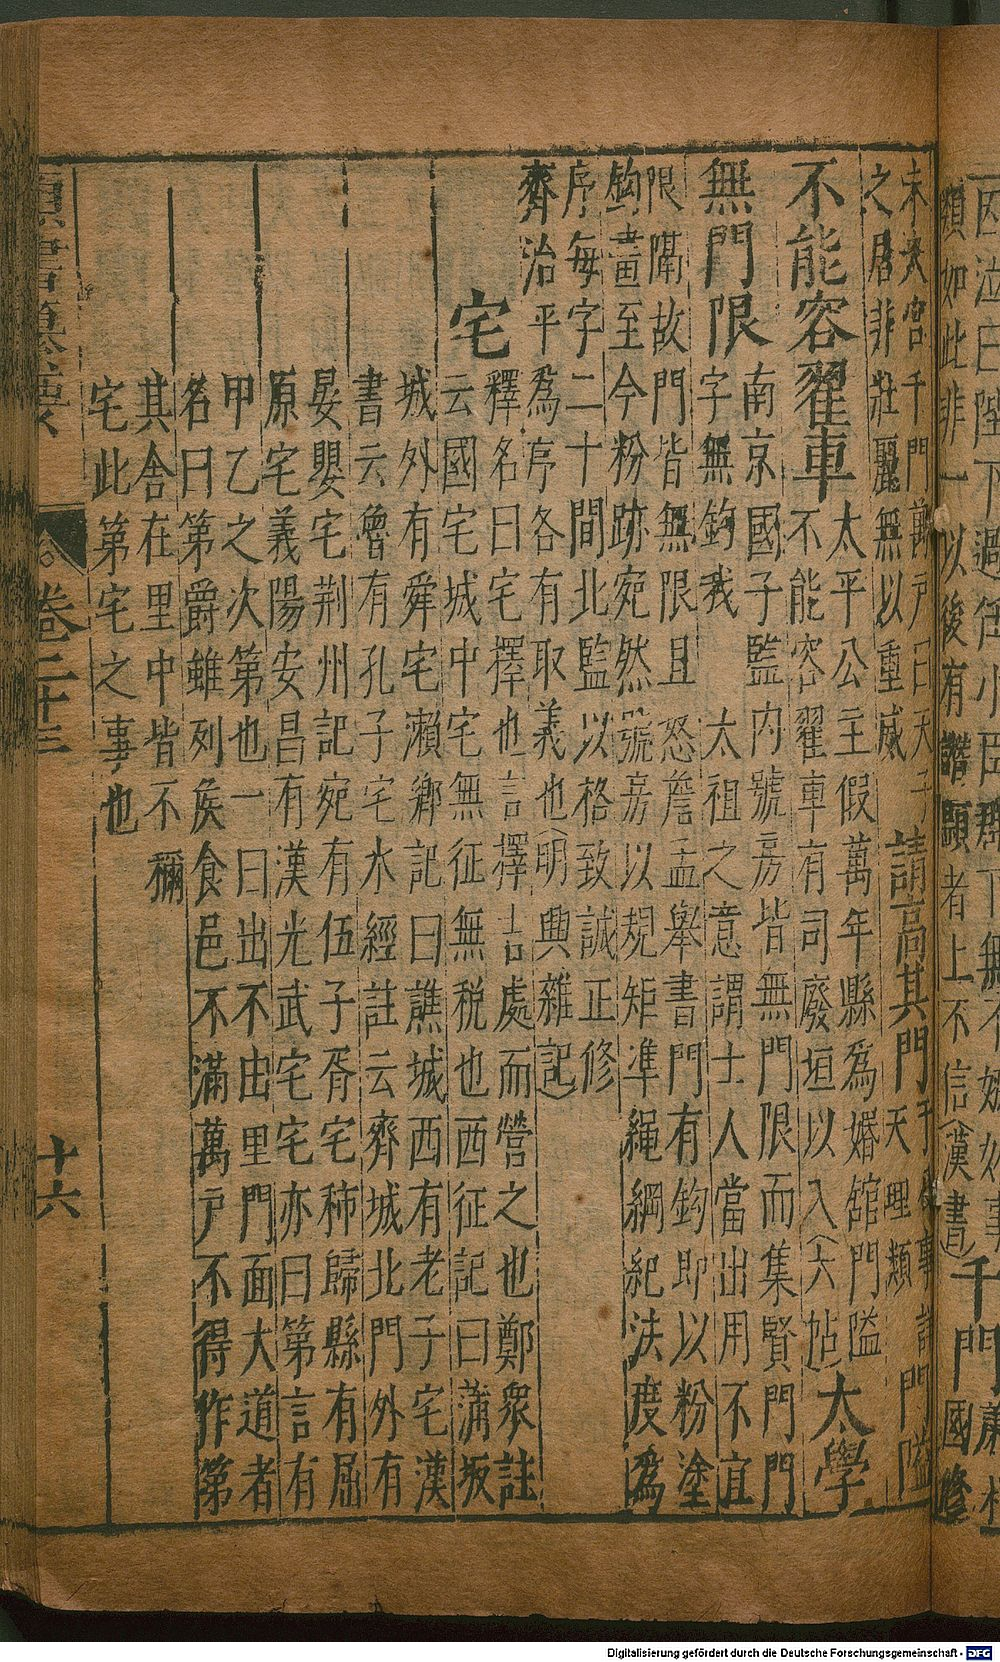 類如此非一以後有譖顯者上不信(漢書)千門國
未央宮千門萬戶曰天子
之居非壯麗無以重威
請高其門
事詳門隘
天理類
不能容翟車
太平公主假萬年縣爲婚舘門隘
不能容翟車有司廢垣以入(六帖)
太學
無門限
南京國子監内號房皆無門限而集賢門門
字無鈎我 太祖之意謂士人當出用不宜
限隔故門皆無限且 怒詹孟舉書門有鈎即以粉塗
鈎畫至今粉跡宛然號房以規矩準繩綱紀法度爲
序每字二十間北監以格致誠正修
齊治平爲序各有取義也(明興雜記)
宅
釋名曰宅擇也言擇吉處而營之也鄭衆註
云國宅城中宅無征無税也西征記曰蒲坂
城外有舜宅瀨鄉記曰譙城西有老子宅漢
書云魯有孔子宅水經註云齊城北門外有
晏嬰宅荆州記宛有伍子胥宅秭歸縣有屈
原宅義陽安昌有漢光武宅宅亦曰第言有
甲乙之次第也一曰出不由里門面大道者
名曰第爵雖列侯食邑不滿萬戶不得作第
其舍在里中皆不稱
宅此第宅之事也
類書纂要 卷二十三 十六
Digitalisierung gefördert durch die Deutsche Forschungsgemeinschaft - DFG